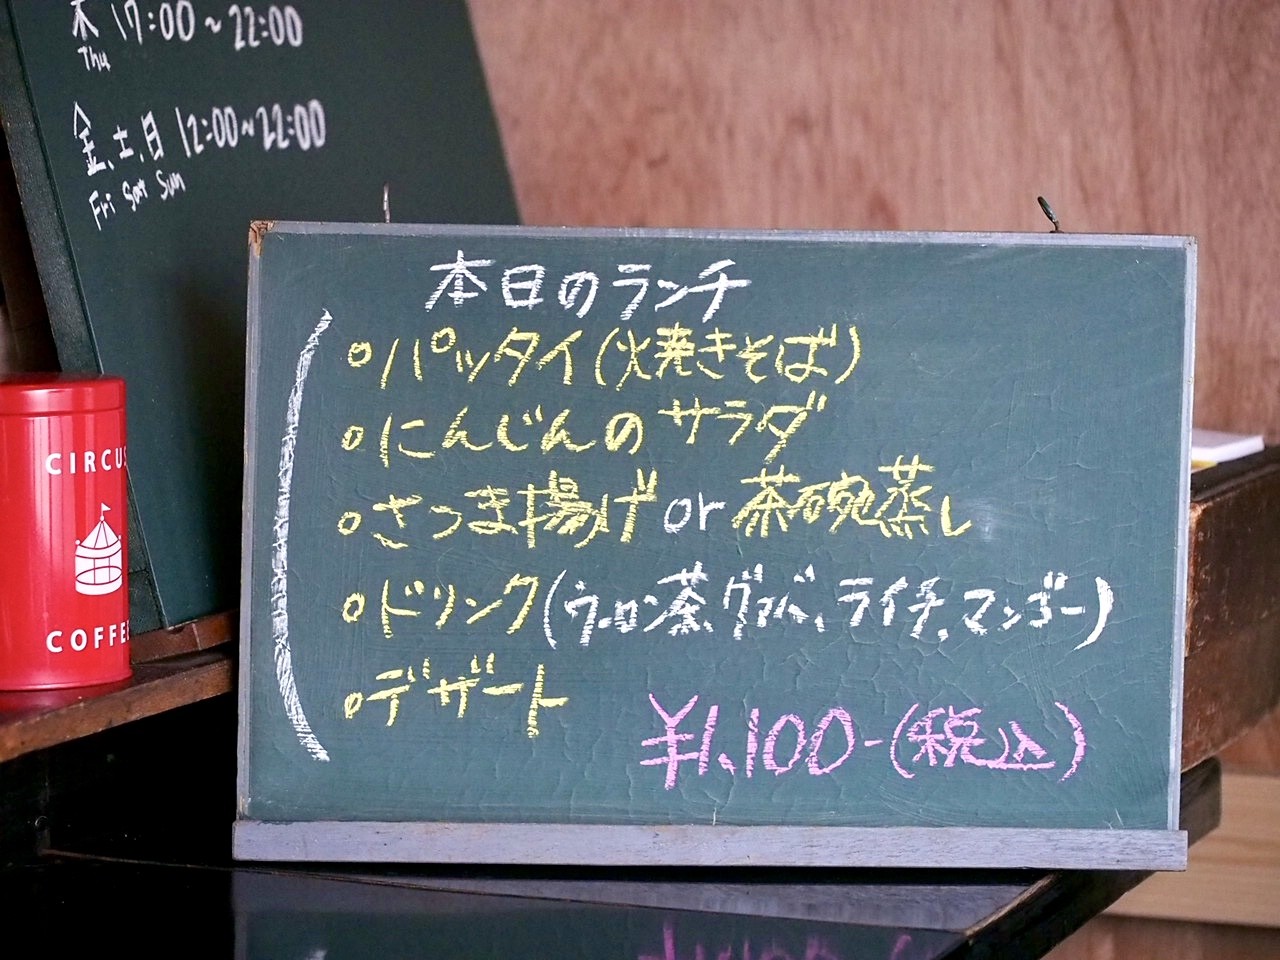 木 17:00~22:00
Thu
金、土、日 12:00~22:00
Fri Sat Sun
本日のランチ
○パッタイ(火焼きそば)
○にんじんのサラダ
○さつま揚げor茶碗蒸し
○ドリンク(ウーロン茶、グァバ、ライチ、マンゴー)
○デザート
¥1,100-(税込)
CIRCUS
COFFEE